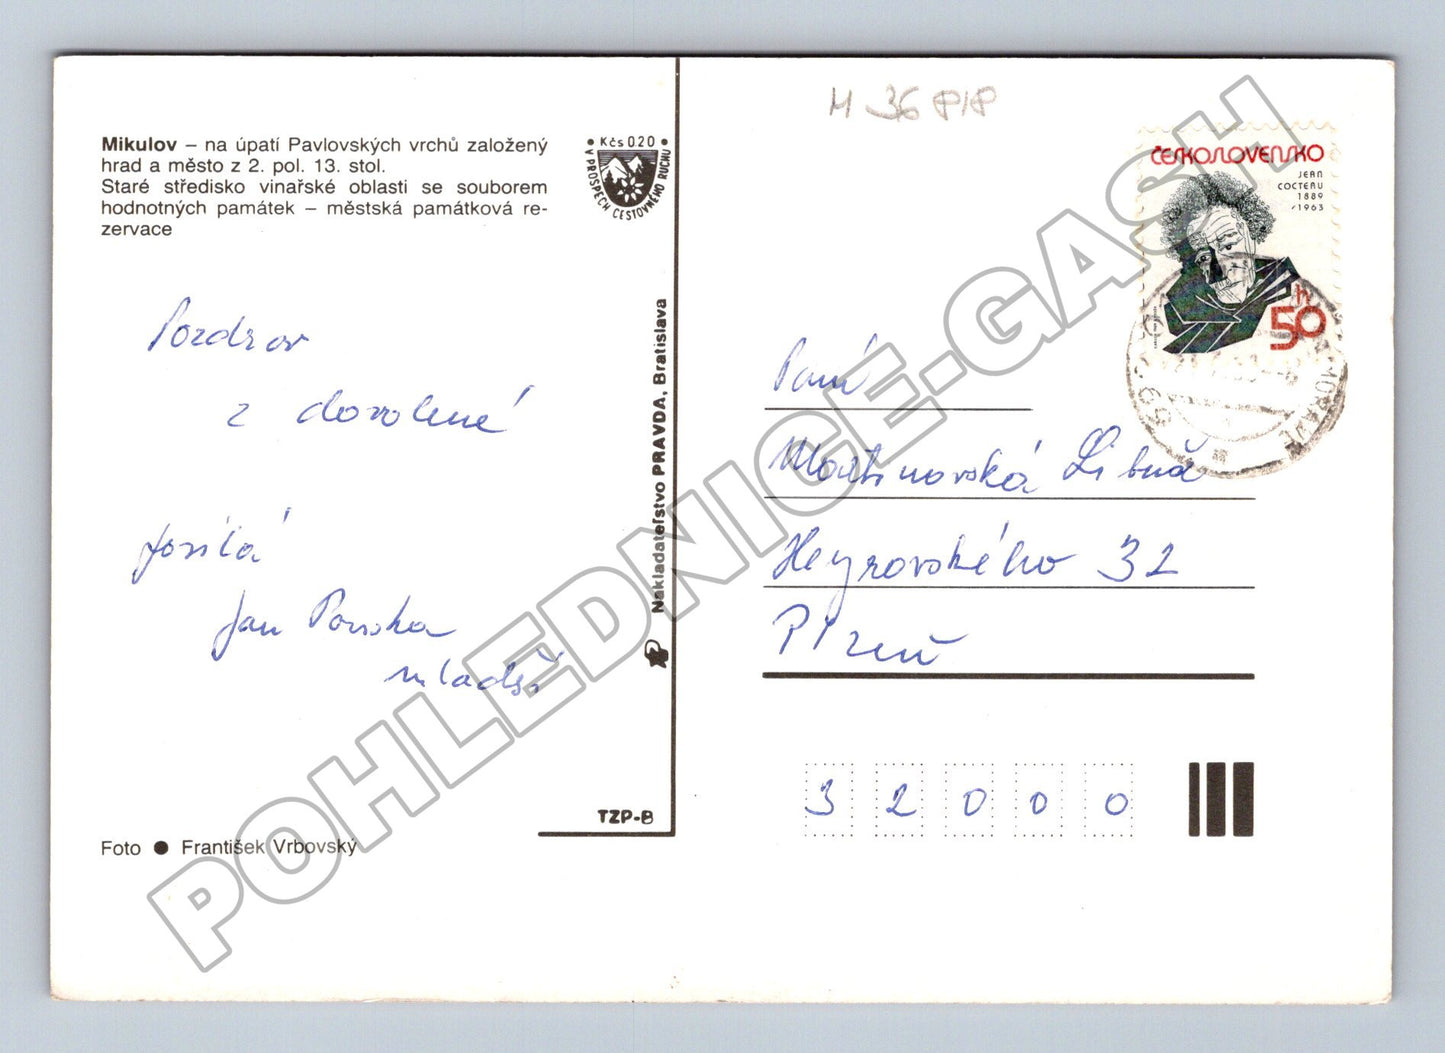 Mikulov – na úpatí Pavlovských vrchů založený
hrad a město z 2. pol. 13. stol.
Staré středisko vinařské oblasti se souborem
hodnotných památek – městská památková re-
zervace
Kčs 020
V PROSPĚCH CESTOVNÉHO RUCHU
Pozdrav
z dovolené
posílá
Jan
mladší
Foto ● František Vrbovský
TZP-B
Nakladateľstvo PRAVDA, Bratislava
ČESKOSLOVENSKO
JEAN
COCTEAU
1889
/1963
50 h
Paní
Martinovská Libuš
Heyrovského 32
Plzeň
32000
POHLEDNICE-GASH